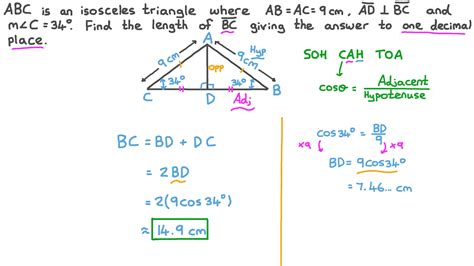 ABC is an isosceles triangle where AB=AC=9cm, AD ⊥ BC and
m∠C=34°. Find the length of BC giving the answer to one decimal
place.
A
9cm
9cm
Hyp
opp
34°
34°
C
D
B
Adj
SOH CAH TOA
cosθ = Adjacent
Hypotenuse
BC = BD + DC
= 2BD
= 2(9cos34°)
≈ 14.9 cm
cos34° = BD
9
×9
×9
BD= 9cos34°
= 7.46...cm